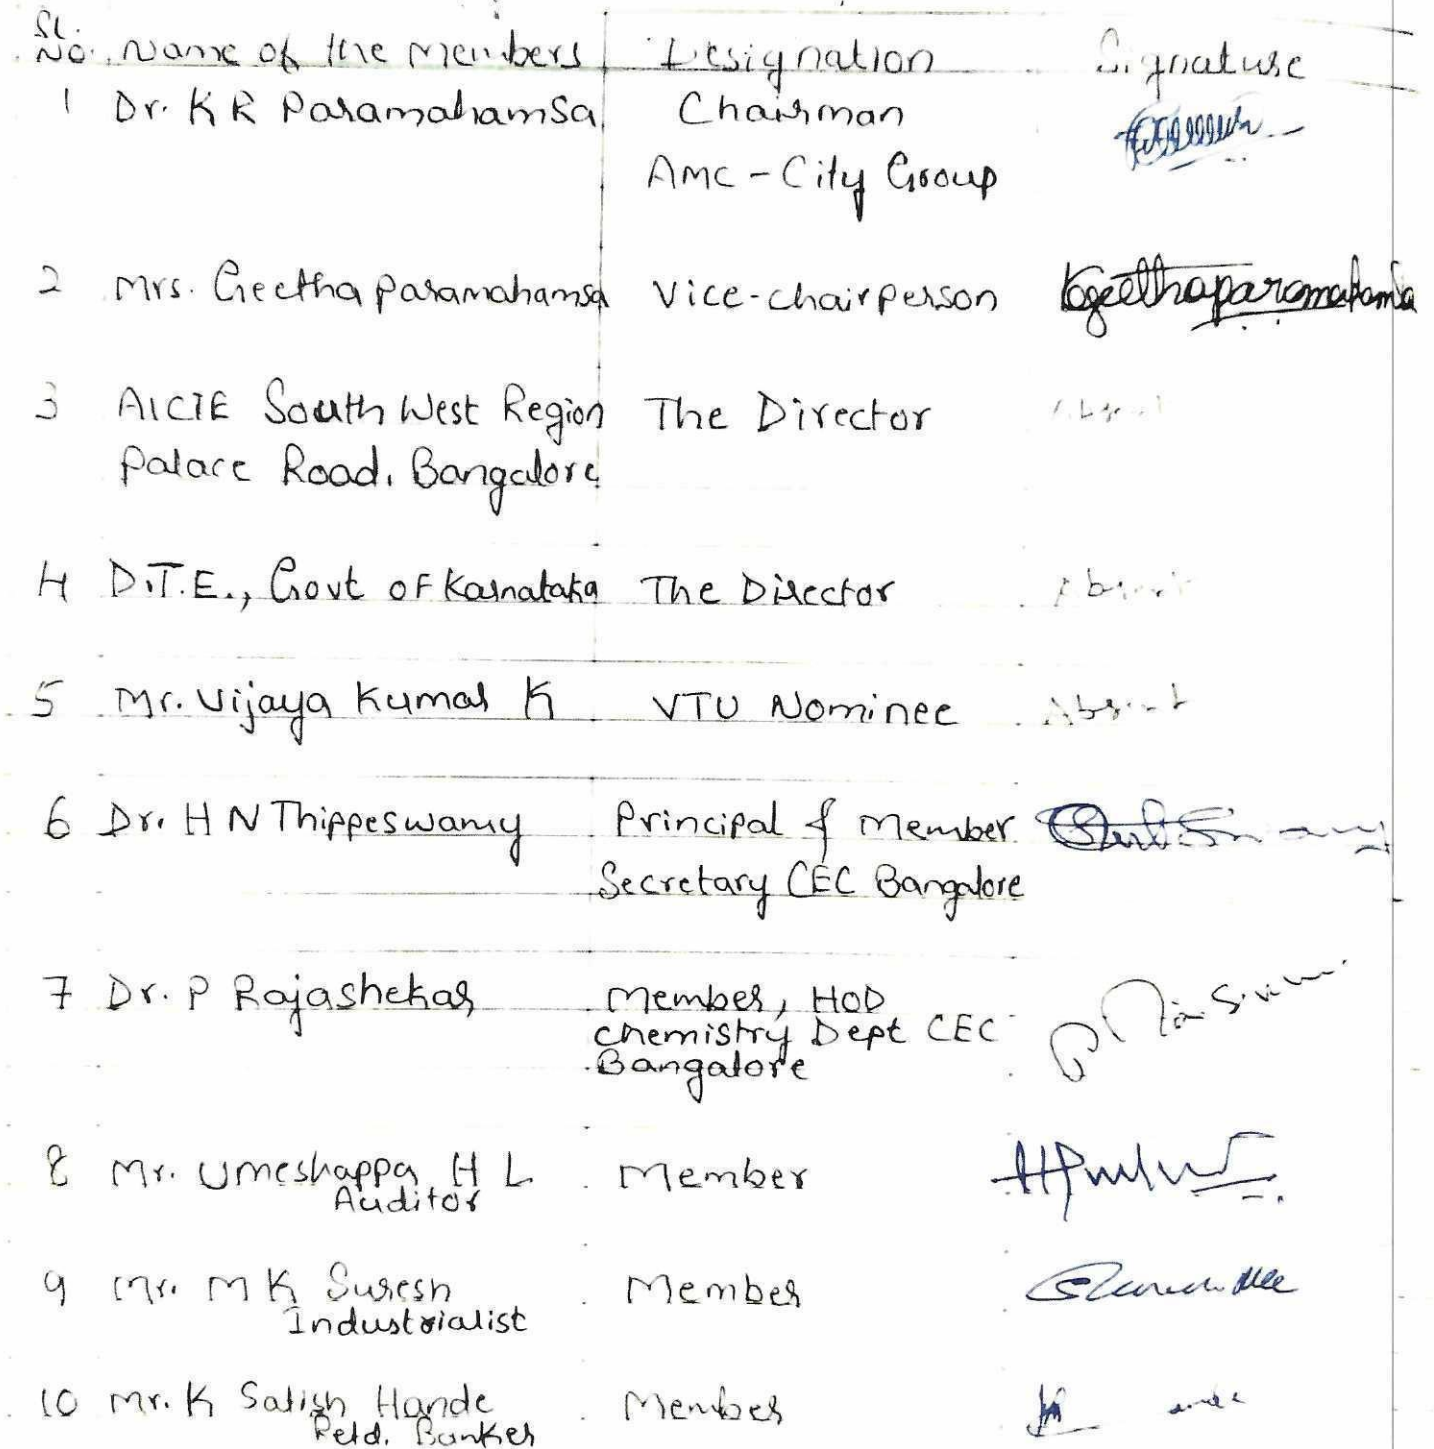 Sl.
No. Name of the Members Designation Signature
1 Dr. K R Paramahamsa Chairman
AMC - City Group
2 Mrs. Geetha Paramahamsa Vice-chairperson Kgeethaparamahamsa
3 AICTE South West Region The Director Absent
Palace Road. Bangalore
4 D.T.E., Govt of Karnataka The Director Absent
5 Mr. Vijaya Kumar K VTU Nominee Absent
6 Dr. H N Thippeswamy Principal & Member
Secretary CEC Bangalore
7 Dr. P Rajashekar Member, HOD
Chemistry Dept CEC
Bangalore
8 Mr. Umeshappa H L Member
Auditor
9 Mr. M K Suresh Member
Industrialist
10 Mr. K Satish Hande Member
Retd. Banker